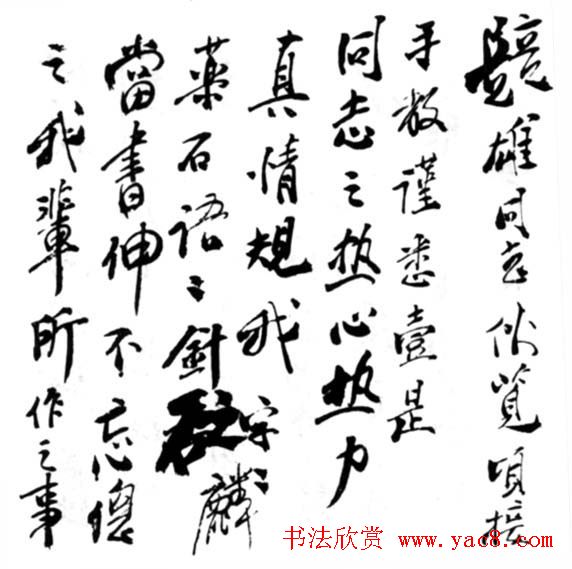 競雄同志俯覽頃接
手教謹悉壹是
同志之热心热力
真情規我字々
藥石語々針砭麟
當書伸不忘總
之我輩所作之事
书法欣赏 www.yac8.com